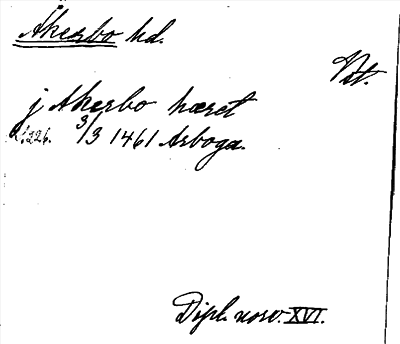 Åkerbo hd.
Vstm.
j Akerbo hæret
s. 226. 3/3 1461 Arboga.
Dipl. norv. XVI.